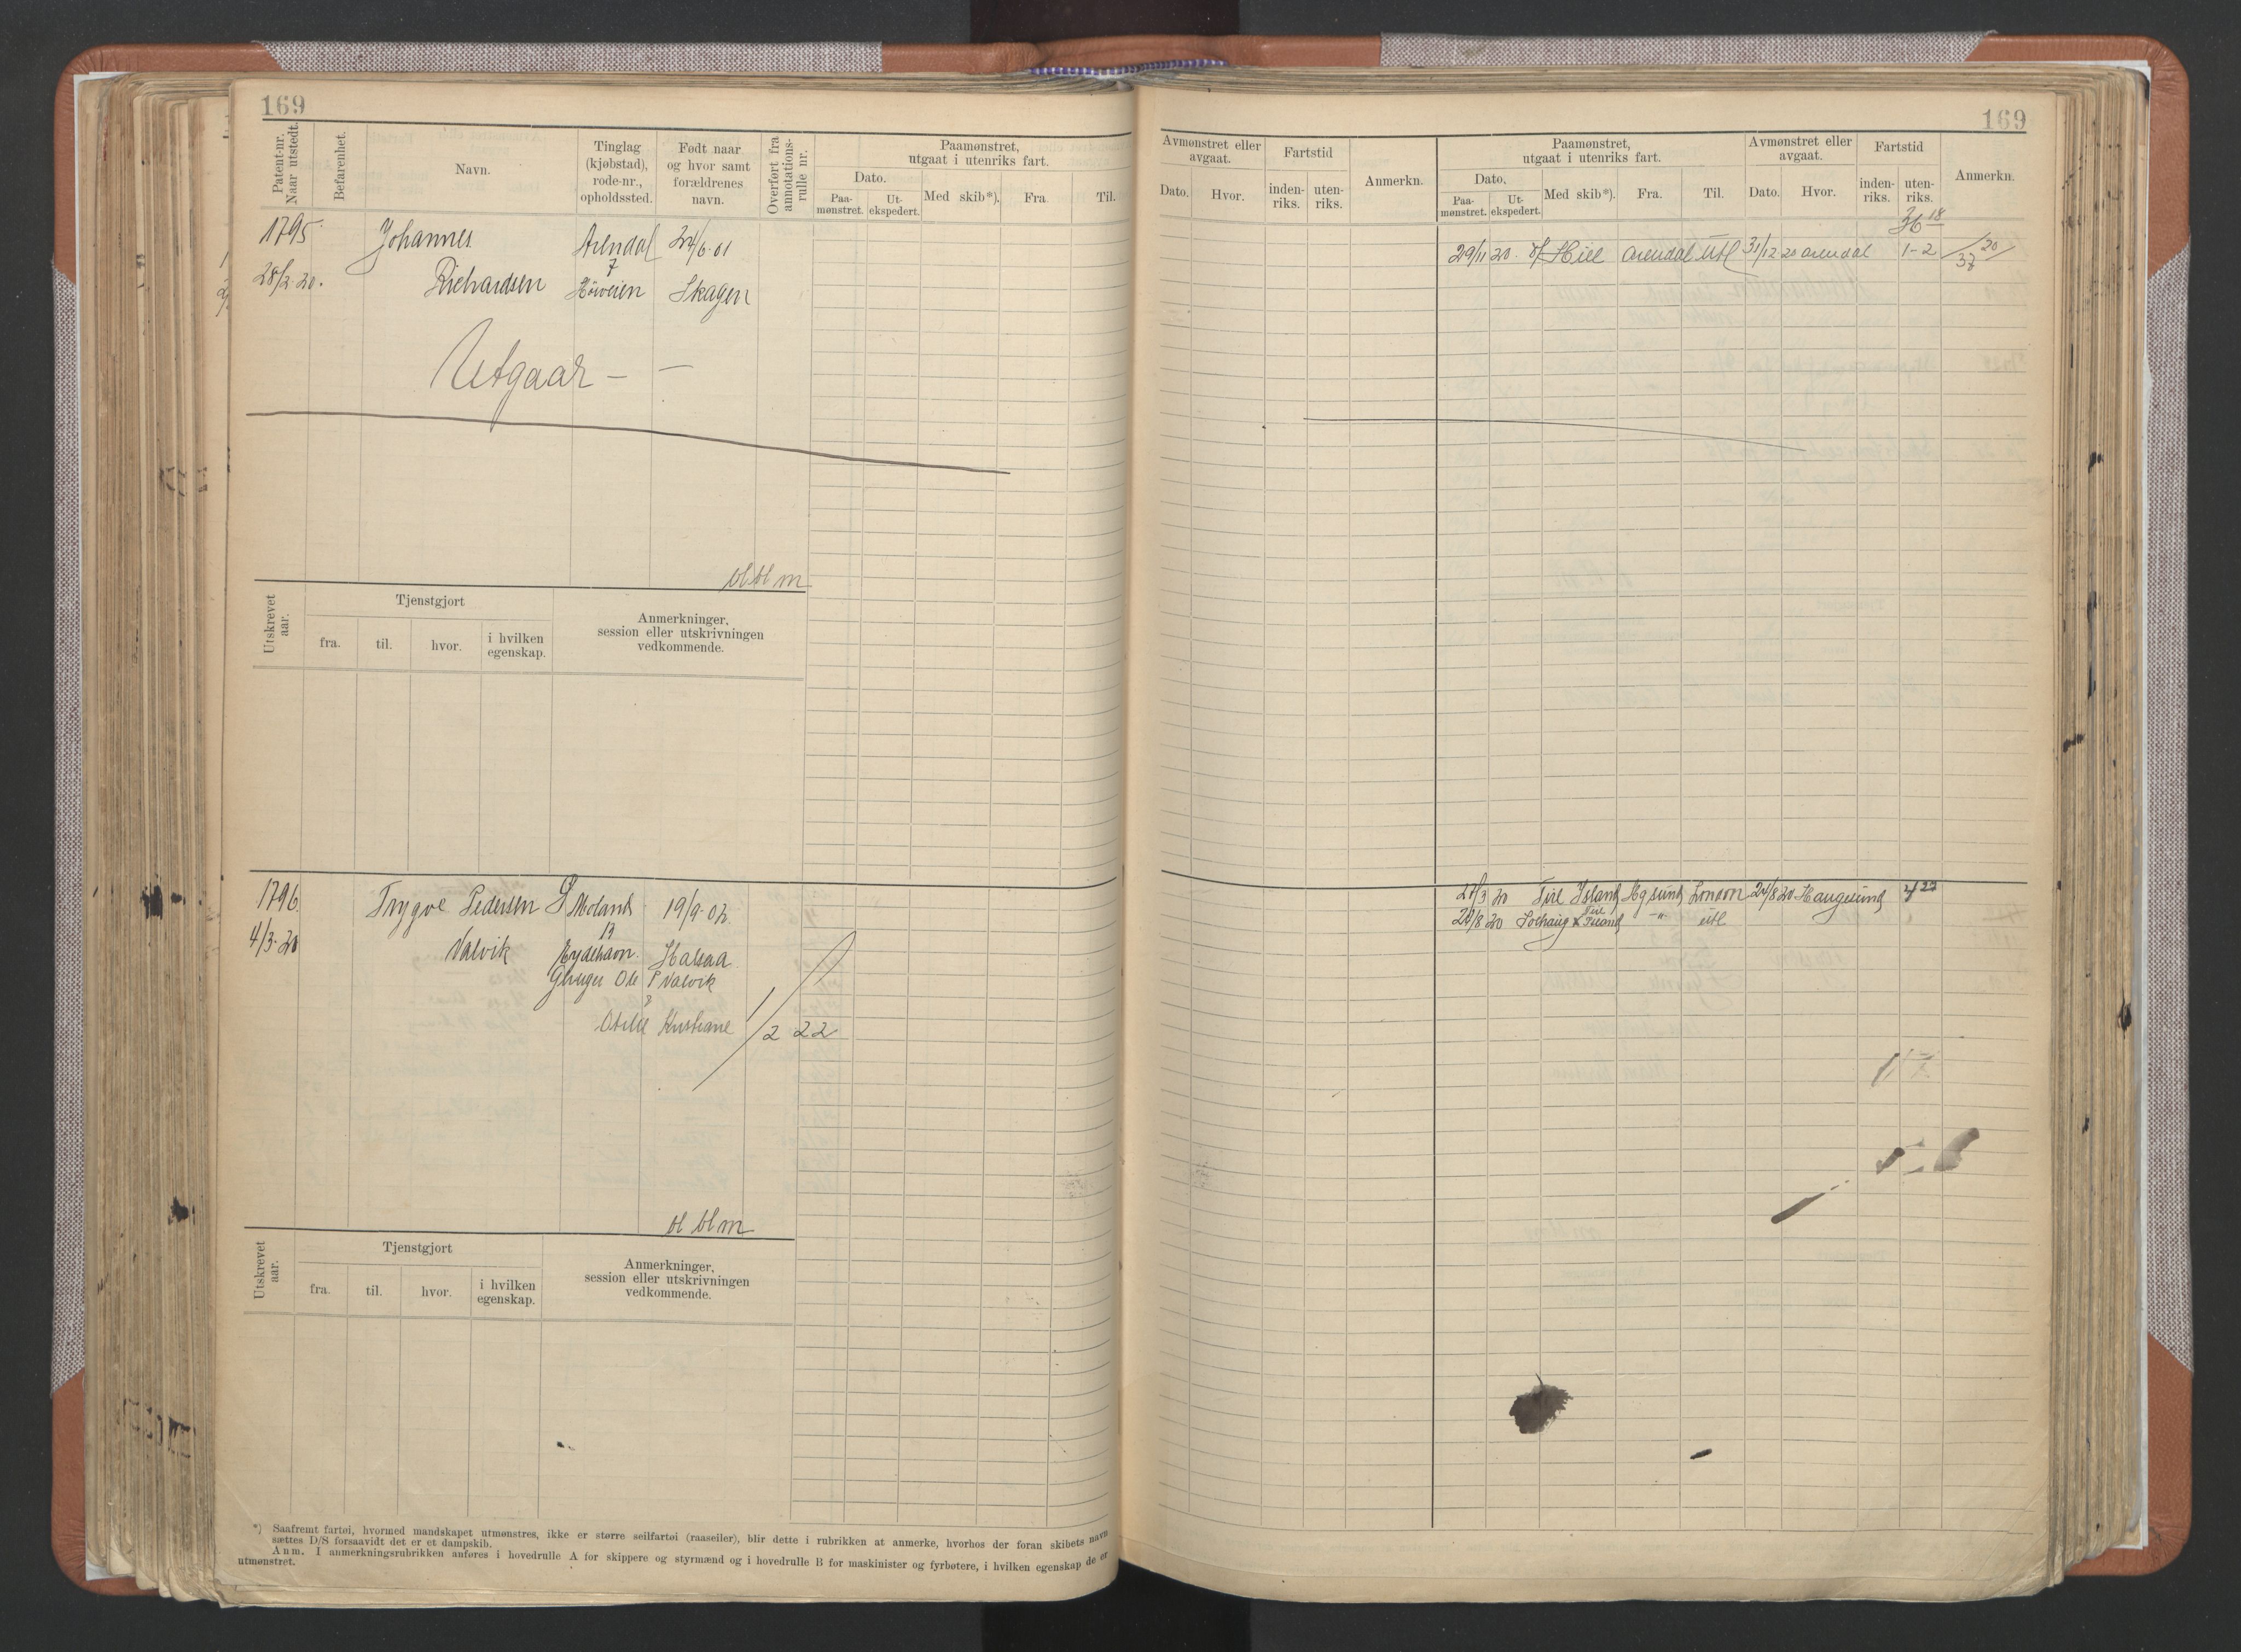 169
Patent-nr. Naar utstedt.
Befarenhet.
Navn.
Tinglag (kjøbstad), rode-nr., opholdssted.
Født naar og hvor samt forældrenes navn.
Overført fra annotations-rulle nr.
Paamønstret, utgaat i utenriks fart.
Dato.
Paa-mønstret.
Ut-ekspedert.
Med skib*).
Fra.
Til.
1795 Johannes Arendal 24/6-01
7
28/2 20. Richardsen Skagen
Utgaar -
bl bl m
Utskrevet aar.
Tjenstgjort
fra.
til.
hvor.
i hvilken egenskap.
Anmerkninger, session eller utskrivningen vedkommende.
1796 Trygve Pedersen Moland 19/9-02
13
4/3-20 Valvik Eydehavn Halsaa
Ole P Valvik
Kristiane
1/2 22
bl bl m
Utskrevet aar.
Tjenstgjort
fra.
til.
hvor.
i hvilken egenskap.
Anmerkninger, session eller utskrivningen vedkommende.
*) Saafremt fartøi, hvormed mandskapet utmønstres, ikke er større seilfartøi (raaseiler), blir dette i rubrikken at anmerke, hvorhos der foran skibets navn
sættes D/S forsaavidt det er et dampskib.
Anm. I anmerkningsrubrikken anføres i hovedrulle A for skippere og styrmænd og i hovedrulle B for maskinister og fyrbøtere, i hvilken egenskap de er
utmønstret.
169
Avmønstret eller avgaat.
Dato.
Hvor.
Fartstid
inden-riks.
uten-riks.
Anmerkn.
Paamønstret, utgaat i utenriks fart.
Dato.
Paa-mønstret.
Ut-ekspedert.
Med skib*).
Fra.
Til.
Avmønstret eller avgaat.
Dato.
Hvor.
Fartstid
inden-riks.
uten-riks.
Anmerkn.
36 18
29/11 20. Arendal Utl 31/12 20 Arendal 1-2 20
37
27/3 20 Island Hgsund London 24/8 20 Haugesund 4 27
20/8 20 Solhaug -"- utl